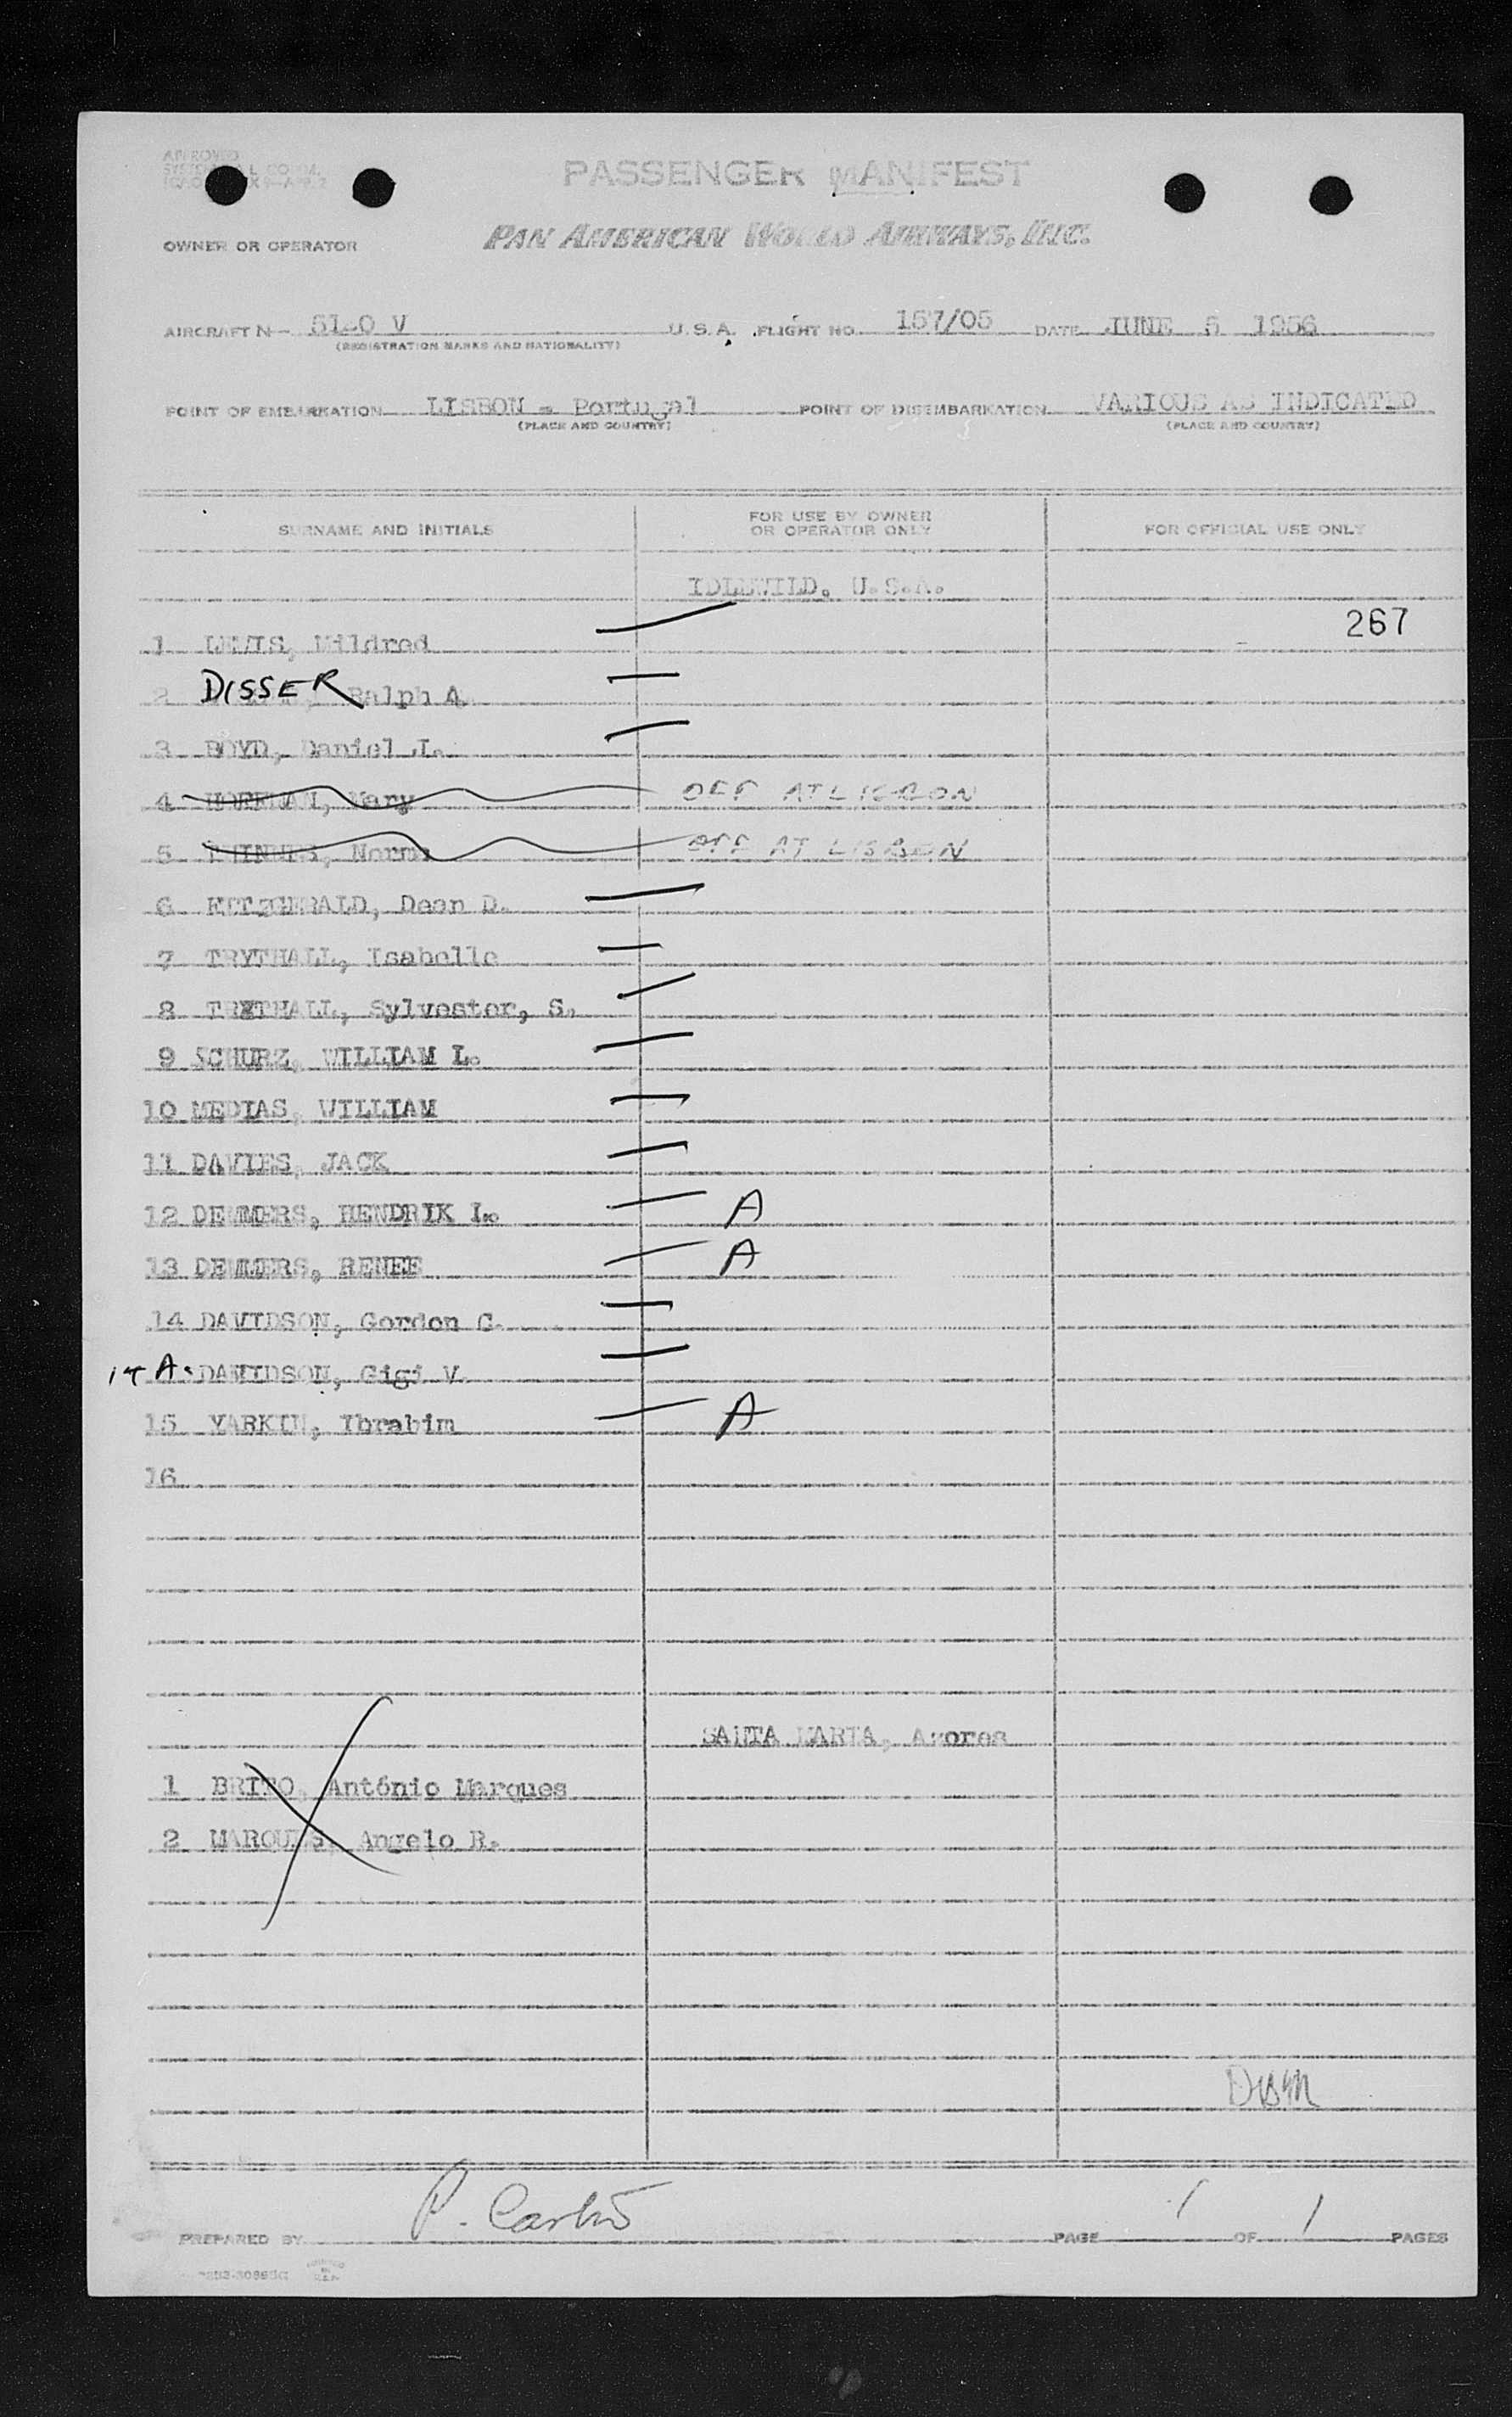 APPROVED
PASSENGER MANIFEST
OWNER OR OPERATOR PAN AMERICAN WORLD AIRWAYS, INC.
AIRCRAFT N V U.S.A. FLIGHT NO. 157/05 DATE JUNE 5 1956
(REGISTRATION MARKS AND NATIONALITY)
POINT OF EMBARKATION LISBON - Portugal POINT OF DISEMBARKATION VARIOUS AS INDICATED
(PLACE AND COUNTRY) (PLACE AND COUNTRY)
SURNAME AND INITIALS FOR USE BY OWNER OR OPERATOR ONLY FOR OFFICIAL USE ONLY
IDLEWILD, U.S.A.
267
1 LEWIS, Mildred
2 DISSER Ralph A.
3 BOYD, Daniel J.
4 Mary OFF AT LISBON
5 Norma OFF AT LISBON
6 FITZGERALD, Dean D.
7 TRYTHALL, Isabelle
8 TRYTHALL, Sylvester, S.
9 SCHURZ, WILLIAM L.
10 MEDIAS, WILLIAM
11 DAVIES, JACK
12 DEMMERS, HENDRIK L. A
13 DEMMERS, RENEE A
14 DAVIDSON, Gordon C.
14 A. DAVIDSON, Gigi V.
15 YARKIN, Ibrahim A
16
SANTA MARIA, Azores
1 BRITO, António Marques
2 MARQUES, Angelo R.
PREPARED BY P. PAGE 1 OF 1 PAGES